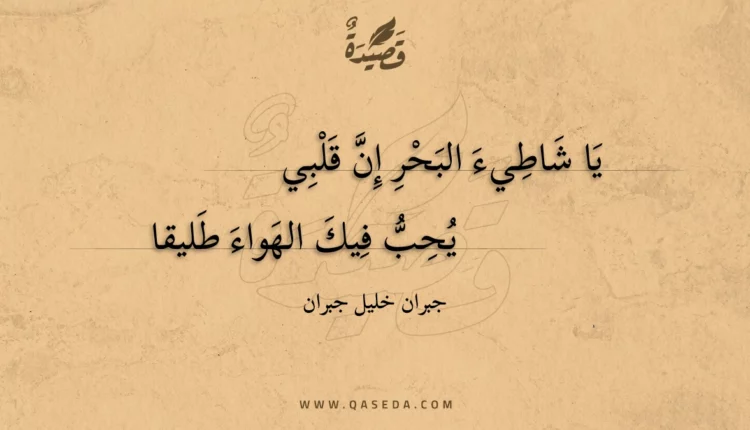 قَصِيدَةٌ
يَا شَاطِيءَ البَحْرِ إِنَّ قَلْبِي
يُحِبُّ فِيكَ الهَواءَ طَليقا
جبران خليل جبران
WWW.QASEDA.COM